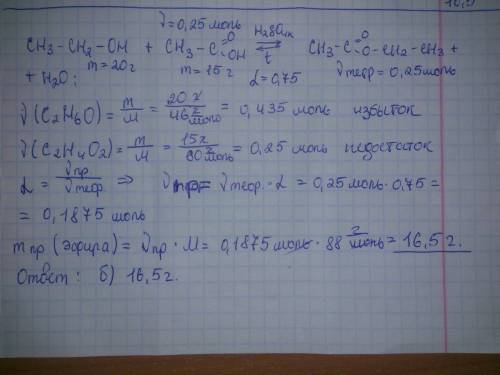 ν=0,25 моль
CH₃-CH₂-OH + CH₃-C(=O)OH ⇄ (H₂SO₄ к, t) CH₃-C(=O)O-CH₂-CH₃ +
m=20г m=15г α=0,75 ν теор.=0,25моль
+ H₂O;
ν(C₂H₆O) = m/M = 20 г/46 г/моль = 0,435 моль избыток
ν(C₂H₄O₂) = m/M = 15г/60 г/моль = 0,25 моль недостаток
α = ν пр/ν теор ⇒ ν пр = ν теор. · α = 0,25 моль · 0,75 =
= 0,1875 моль
m пр (эфира) = ν пр · M = 0,1875 моль · 88 г/моль = 16,5 г.
Ответ: б) 16,5г.